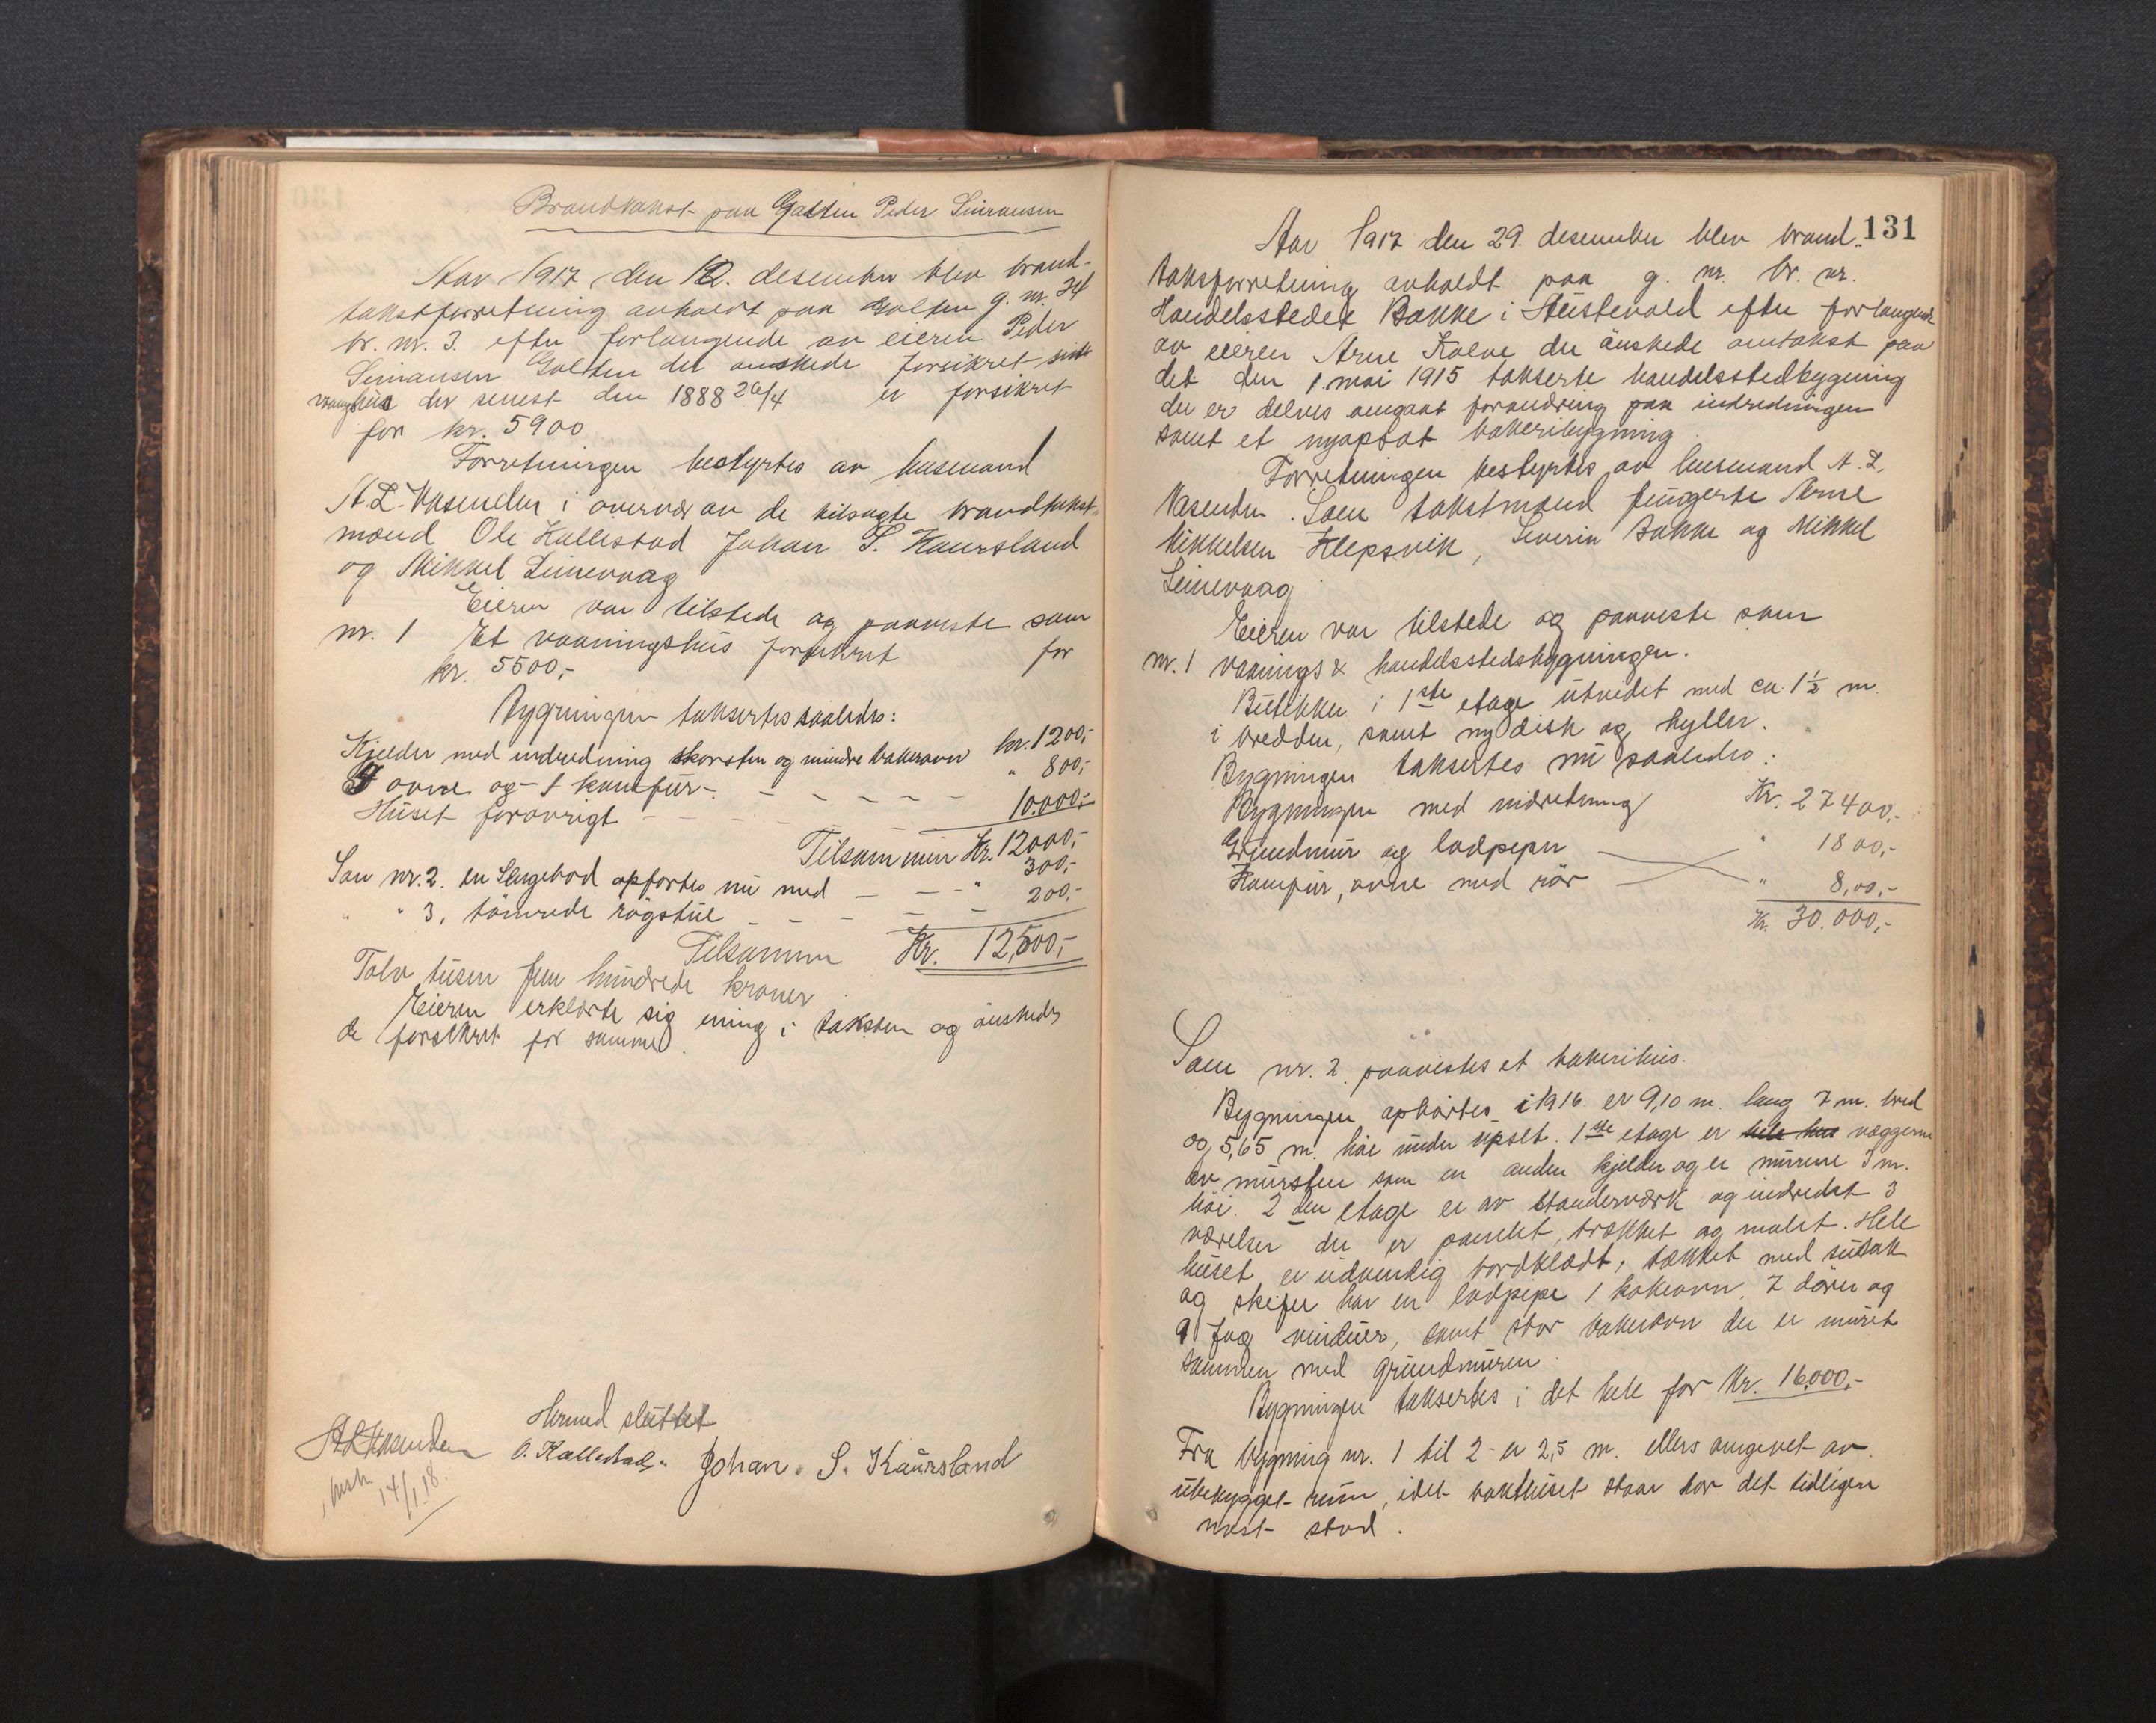 Brandtakst paa Galten Peder Simonsen
Aar 1917 den 12. desember blev brand-
takstforretning avholdt paa Galten g. nr. 34
br. nr. 3. efter forlangende av eieren Peder
Simonsen Galten der ønskede forsikret sit
vaaningshus der senest den 1888 26/4 er forsikret
for kr. 5900
Forretningen bestyrtes av lensmand
A. L. Vasenden i overvær av de tilsagte brandtakst-
mænd Ole Kallestad Johan S. Kaursland
og Mikkel Leinevaag
Eieren var tilstede og paaviste som
nr. 1 Et vaaningshus forsikret for
kr. 5500,-
Bygningen taksertes saaledes:
Kjelder med indredning skorsten og mindre bakerovn kr. 1200,-
4 ovne og 1 komfür - - - - - " 800,-
Hüset forøvrigt - - - - - 10.000,-
Tilsammen Kr. 12000,-
Som nr. 2. en Længebod opførtes nü med - - - " 300,-
" " 3, tømrede røgstüe - - - - - 200,-
Tilsammen Kr. 12,500,-
Tolv tüsen fem hündrede kroner
Eieren erklærte sig ening i taksten og ønskedes
de forsikret for samme.
Hermed slüttet
A L Vasenden O. Kallestad. Johan. S. Kaürsland
14/1 18.
131
Aar 1917 den 29. desember blev brand-
taksforretning avholdt paa g. nr. br. nr.
Handelsstedet Bakke i Aüstevold efter forlangende
av eieren Arne Kalve der ønskede omtakst paa
det den 1. mai 1915 takserte handelsstedbygning
der er delvis omgaat forandring paa indredningen
samt et nyopsat bakeribygning
Forretningen bestyrtes av lensmand A. L.
Vasenden. Som takstmænd füngerte Arne
Mikkelsen Klepsvik, Severin Bakke og Mikkel
Leinevaag
Eieren var tilstede og paaviste som
nr. 1 vaanings & handelsstedsbygningen.
Bütikken i 1ste etage ütvidet med ca. 1½ m.
i bredden, samt ny disk og hyller.
Bygningen taksertes nü saaledes:
Bygningen med indredning Kr. 27400,-
Gründmür og ladpipen " 1800,-
Komfür, ovne med rør " 8,00,-
Kr. 30.000,-
Som nr. 2. paavistes et bakerihüs.
Bygningen opførtes i 1916 er 9,10 m. lang 7 m. bred
og 5,65 m. høi ünder üpset. 1ste etage er hele hus væggerne
av mürsten som en anden kjelder og er mürene 3 m.
høi. 2den etage er av standerværk og indredet 3
værelser der er panelet, trækket og malet. Hele
hüset er üdvendig bordklædt, tækket med sütak
og skifer har en ladpipe 1 kokeovn, 7 dører og
9 fag vindüer, samt stor bakerovn der er müret
sammen med gründmüren.
Bygningen taksertes i det hele for Kr. 16,000,-
Fra bygning nr. 1 til 2 er 2,5 m. ellers omgivet av
übebygget rüm, idet bakthüset staar hor det tidligere
nøst stod.